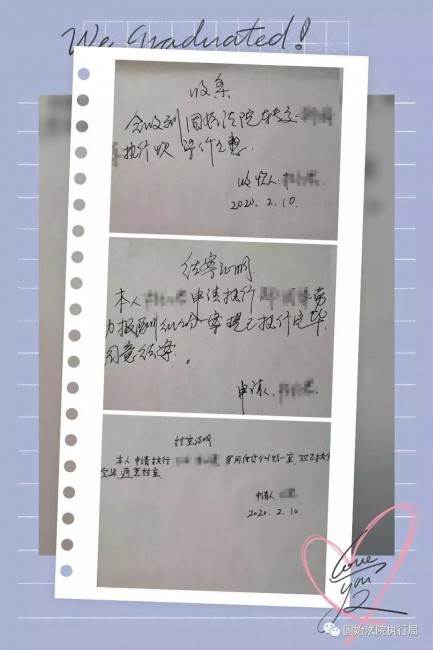 We Graduated!
收条
今收到固始法院转交
执行款
收款人:
2020.2.10
结案证明
本人 申请执行 劳
力报酬纠纷一案现已执行完毕
同意结案。
申请人:
结案证明
本人申请执行 纠纷一案,现已执行
完毕,同意结案.
申请人:
2020.2.10
Love
you
固始法院执行局